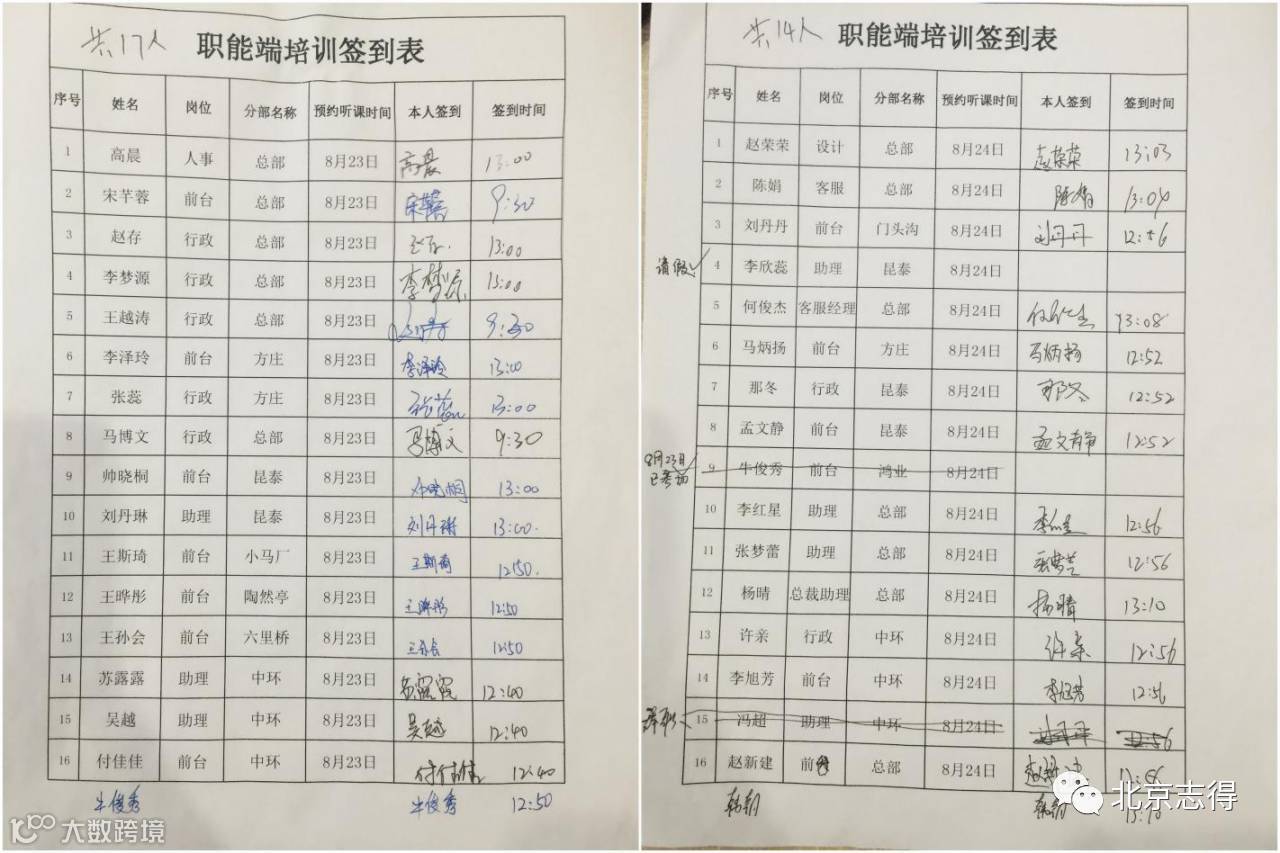 共17人 职能端培训签到表
序号 姓名 岗位 分部名称 预约听课时间 本人签到 签到时间
1 高晨 人事 总部 8月23日 高晨 13:00
2 宋芊蓉 前台 总部 8月23日 9:30
3 赵存 行政 总部 8月23日 赵存 13:00
4 李梦源 行政 总部 8月23日 李梦源 13:00
5 王越涛 行政 总部 8月23日 9:30
6 李泽玲 前台 方庄 8月23日 李泽玲 13:00
7 张蕊 行政 方庄 8月23日 张蕊 13:00
8 马博文 行政 总部 8月23日 马博文 9:30
9 帅晓桐 前台 昆泰 8月23日 帅晓桐 13:00
10 刘丹琳 助理 昆泰 8月23日 刘丹琳 13:00.
11 王斯琦 前台 小马厂 8月23日 王斯琦 12:50.
12 王晔彤 前台 陶然亭 8月23日 王晔彤 12:50
13 王孙会 前台 六里桥 8月23日 王孙会 12:50
14 苏露露 助理 中环 8月23日 苏露露 12:40
15 吴越 助理 中环 8月23日 吴越 12:40
16 付佳佳 前台 中环 8月23日 付佳佳 12:40
牛俊秀 牛俊秀 12:50
大数跨境
共14人 职能端培训签到表
序号 姓名 岗位 分部名称 预约听课时间 本人签到 签到时间
1 赵荣荣 设计 总部 8月24日 赵荣荣 13:03
2 陈娟 客服 总部 8月24日 陈娟 13:04
3 刘丹丹 前台 门头沟 8月24日 刘丹丹 12:56
请假 4 李欣蕊 助理 昆泰 8月24日
5 何俊杰 客服经理 总部 8月24日 何俊杰 13:08
6 马炳扬 前台 方庄 8月24日 马炳扬 12:52
7 那冬 行政 昆泰 8月24日 那冬 12:52
8 孟文静 前台 昆泰 8月24日 孟文静 12:52
8月23日
已参加
9 牛俊秀 前台 鸿业 8月24日
10 李红星 助理 总部 8月24日 12:56
11 张梦蕾 助理 总部 8月24日 12:56
12 杨晴 总裁助理 总部 8月24日 杨晴 13:10
13 许亲 行政 中环 8月24日 许亲 12:56
14 李旭芳 前台 中环 8月24日 李旭芳 12:56
15 冯超 助理 中环 8月24日 刘丹丹 12:56
16 赵新建 前 总部 8月24日 赵新建 12:56
13:10
北京志得